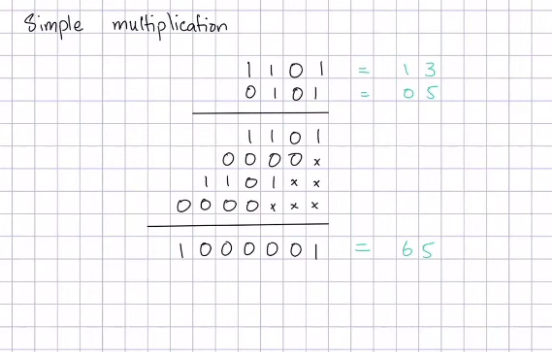 Simple multiplication
1101 = 13
0101 = 05
1101
0000x
1101xx
0000xxx
1000001 = 65